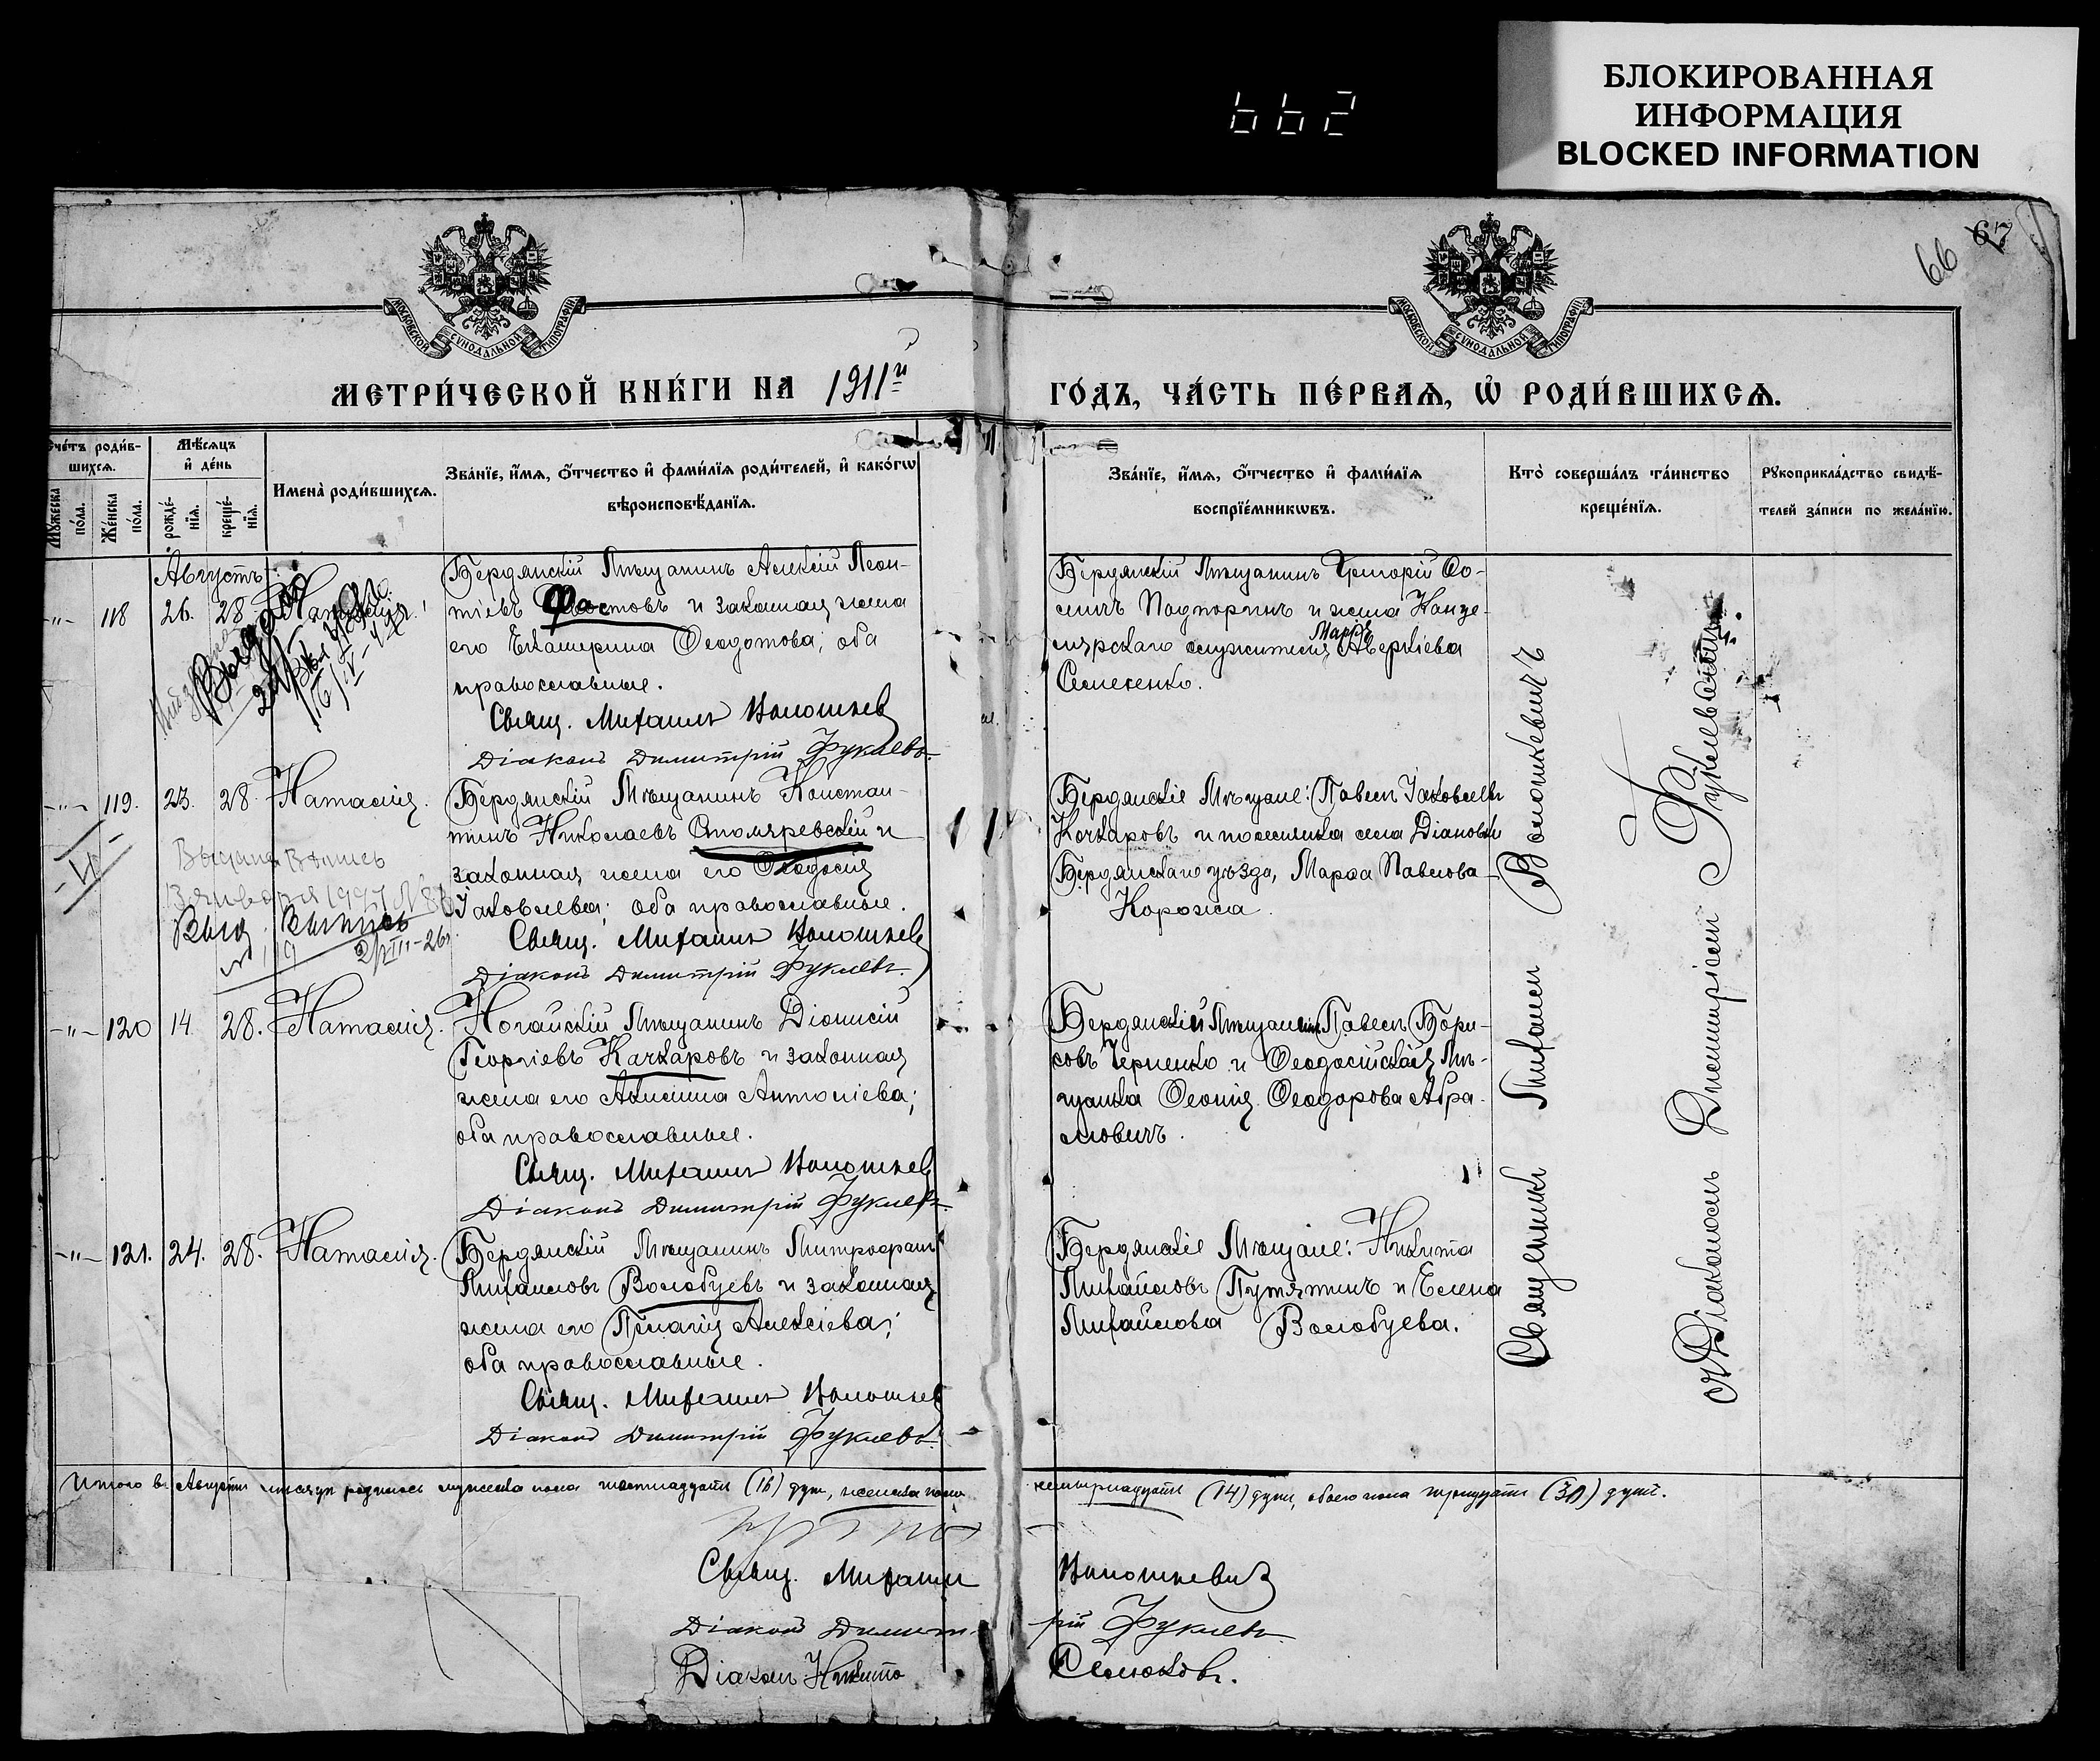 БЛОКИРОВАННАЯ
ИНФОРМАЦИЯ
BLOCKED INFORMATION
662
66 67
МОСКОВСКОЙ СѴНОДАЛЬНОЙ ТИПОГРАФІИ
МОСКОВСКОЙ СѴНОДАЛЬНОЙ ТИПОГРАФІИ
МЕТРИ́ЧЕСКОЙ КНИ́ГИ НА 1911й
ГО́ДЪ, ЧА́СТЬ ПЕ́РВАѦ, Ѡ҆ РОДИ́ВШИХСѦ.
Сче́тъ роди́в-
шихсѧ.
Мѣ́сѧцъ
и҆ де́нь
Мꙋ́жеска
по́ла.
Же́нска
по́ла.
рожде́-
нїѧ.
креще́-
нїѧ.
Имена̀ роди́вшихсѧ.
Зва́нїе, и҆́мѧ, ѻ҆́тчество и҆ фами́лїѧ роди́телей, и҆ како́гѡ
вѣроисповѣ́данїѧ.
Зва́нїе, и҆́мѧ, ѻ҆́тчество и҆ фами́лїѧ
воспрїе́мникѡвъ.
Кто̀ соверша́лъ та́инство
креще́нїѧ.
Рꙋкоприкла́дство свидѣ́-
телей за́писи по жела́нїю.
Августъ
-"- 118 26. 28
Бердянскій Мѣщанинъ Алексій Леон-
тіевъ и законная жена
его Екатерина Ѳеодотова; оба
православные.
Свящ. Михаилъ Волошкев
Діаконъ Димитрій Фуклевъ.
Бердянскій Мѣщанинъ Григорій Ѳо-
мичъ Подпоринъ и жена Канце-
лярскаго служителя Марія Аверкіева
Семененко.
-"- 119. 23. 28. Наталія.
Бердянскій Мѣщанинъ Констан-
тинъ Николаевъ Столяревскій и
законная жена его Ѳеодосія
Іаковлева; оба православные.
Свящ. Михаилъ Волошкев
Діаконъ Димитрій Фуклевъ.
Выдана выпись
Выд. Выпись
№ 119
Бердянскіе Мѣщане: Павелъ Іаковлевъ
Качкаровъ и поселянка села Діановки
Бердянскаго уѣзда, Марѳа Павлова
Корожа.
-"- 120 14. 28. Наталія.
Ногайскій Мѣщанинъ Діонисій
Георгіевъ Качкаровъ и законная
жена его Акилина Антоніева;
оба православные.
Свящ. Михаилъ Волошкев
Діаконъ Димитрій Фуклевъ.
Бердянскій Мѣщанинъ Павелъ Бори-
совъ Черненко и Ѳеодосійская Мѣ-
щанка Ѳеонія Ѳеодорова Абра-
мовичъ.
-"- 121. 24. 28. Наталія.
Бердянскій Мѣщанинъ Митрофанъ
Михаиловъ Волобуевъ и законная
жена его Пелагія Алексіева;
оба православные.
Свящ. Михаилъ Волошкев
Діаконъ Димитрій Фуклевъ.
Бердянскіе Мѣщане: Никита
Михайловъ Путятинъ и Елена
Михайлова Волобуева.
Священникъ Михаилъ Волошкевичъ
съ Діакономъ Димитріемъ Фуклевымъ.
Итого въ Августѣ мѣсяцѣ родилось мужеска пола шестнадцать (16) душ, женска пола
четырнадцать (14) душъ, обоего пола тридцать (30) душъ.
Свящ. Михаилъ Волошкевичъ
Діаконъ Димитрій Фуклевъ.
Діаконъ Никита Семковъ.